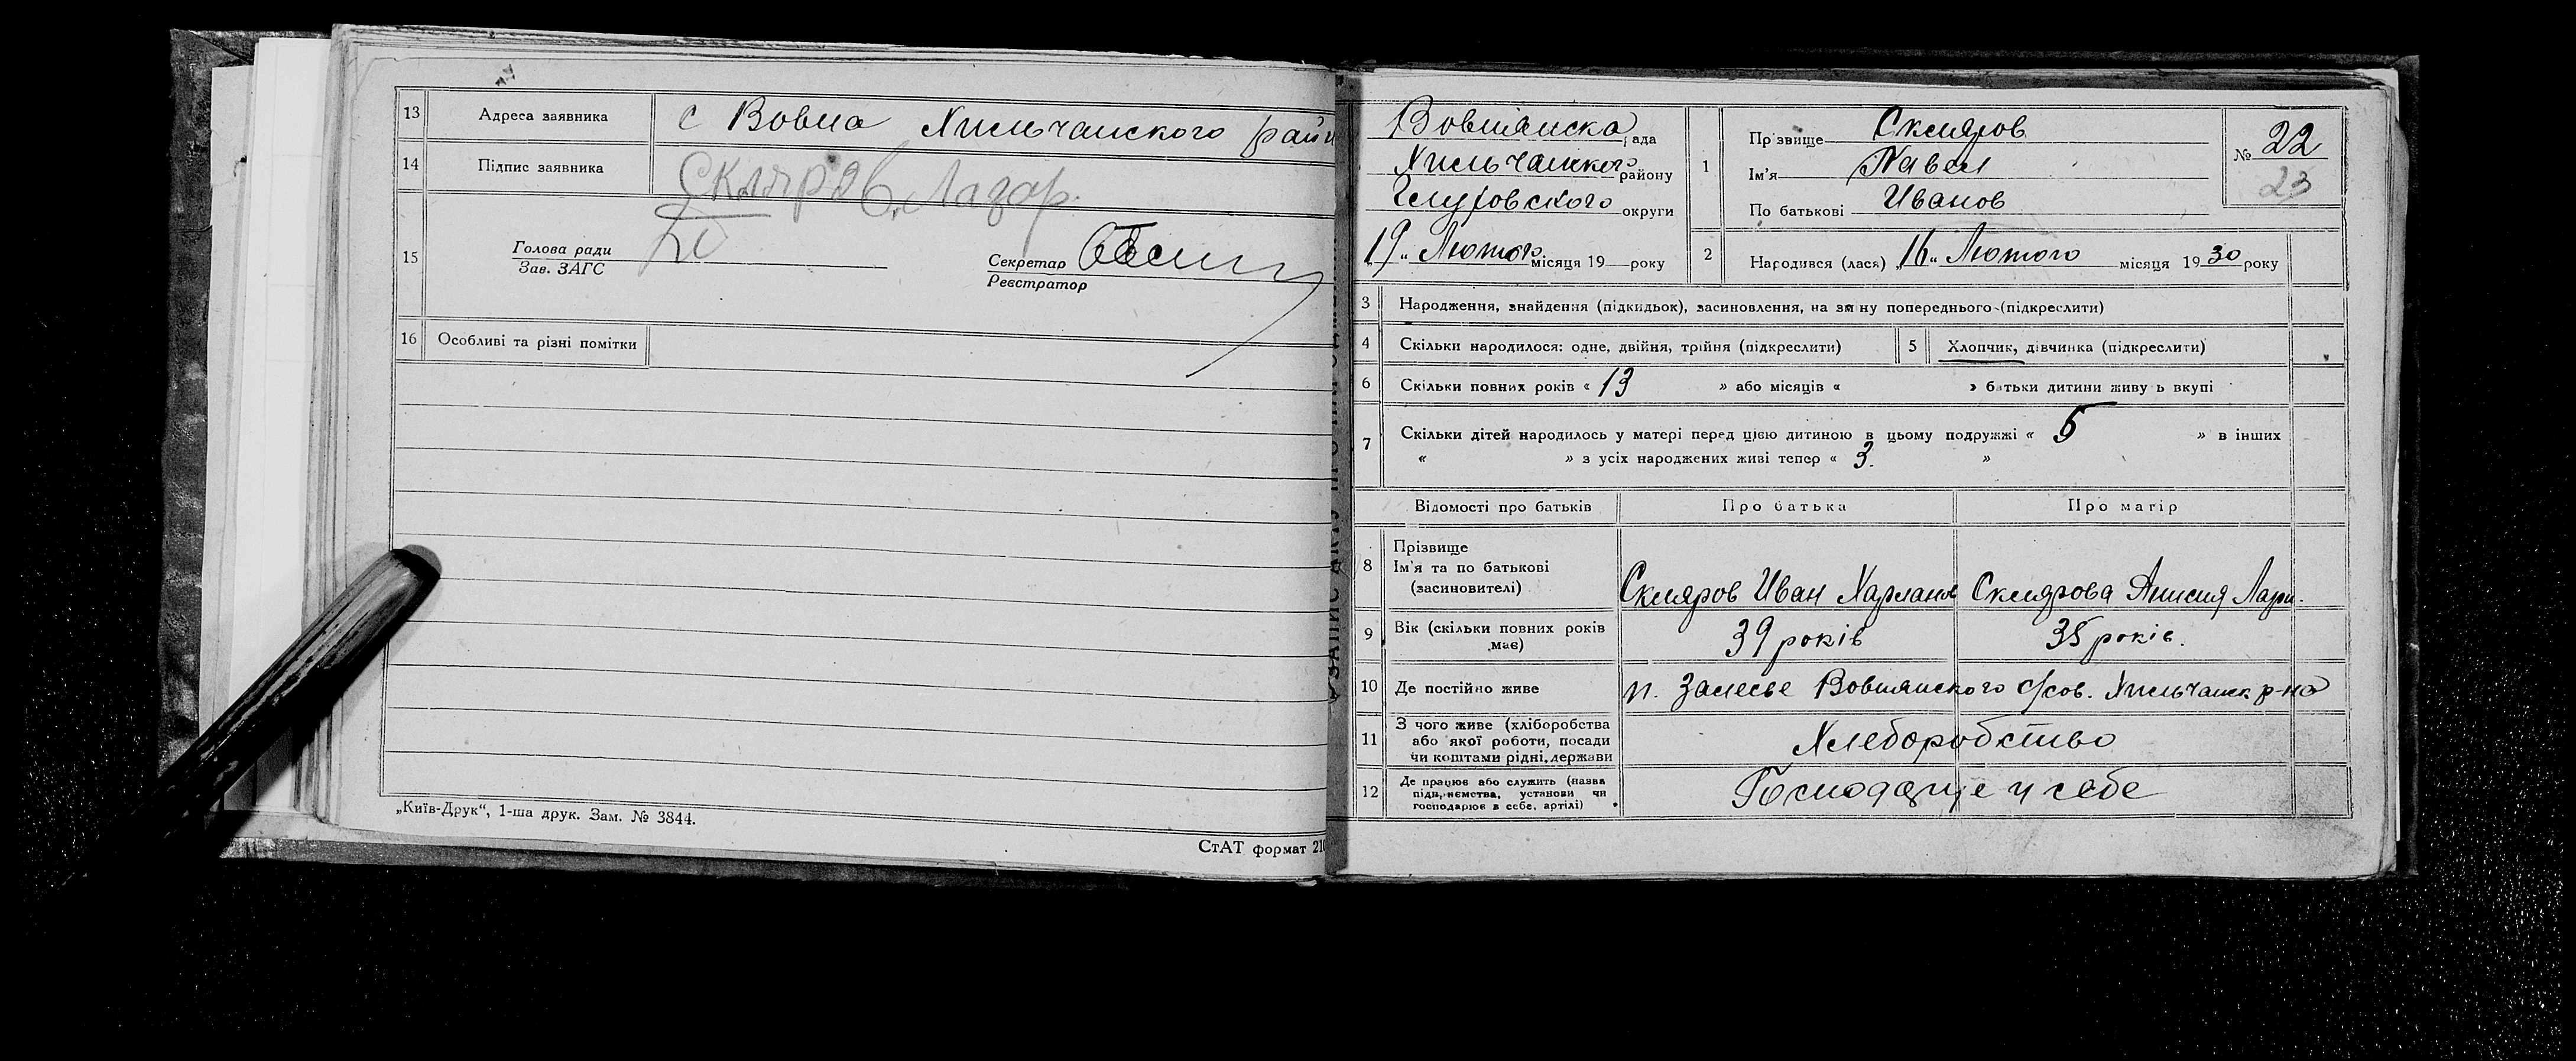 13 Адреса заявника с Вовна Хильчанского райн
14 Підпис заявника Скляров Лазар.
15 Голова ради
Зав. ЗАГС
Секретар
Реєстратор
16 Особливі та різні помітки
„Київ-Друк“, 1-ша друк. Зам. № 3844.
СтАТ формат 210
Вовнянска рада
Хильчанского району
Глуховского округи
„19“ Лютого місяця 19 року
1 Прізвище Скляров
Ім'я Павел
По батькові Иванов
№ 22
23
2 Народився (лася) „16“ Лютого місяця 1930 року
3 Народження, знайдення (підкидьок), засиновлення, на зміну попереднього (підкреслити)
4 Скільки народилося: одне, двійня, трійня (підкреслити)
5 Хлопчик, дівчинка (підкреслити)
6 Скільки повних років « 13 » або місяців « » батьки дитини живуть вкупі
7 Скільки дітей народилось у матері перед цією дитиною в цьому подружжі « 5 » в інших
« » з усіх народжених живі тепер « 3. »
Відомості про батьків Про батька Про матір
8 Прізвище
Ім'я та по батькові
(засиновителі)
Скляров Иван Харланов Склярова Анисия Лазри.
9 Вік (скільки повних років
має)
39 років 35 років.
10 Де постійно живе п. Залесье Вовнянского с/сов. Хильчанск р-на
11 З чого живе (хліборобства
або якої роботи, посади
чи коштами рідні, держави
Хлеборобство
12 Де працює або служить (назва
підприємства, установи чи
господарює в себе, артілі)
Господарує у себе